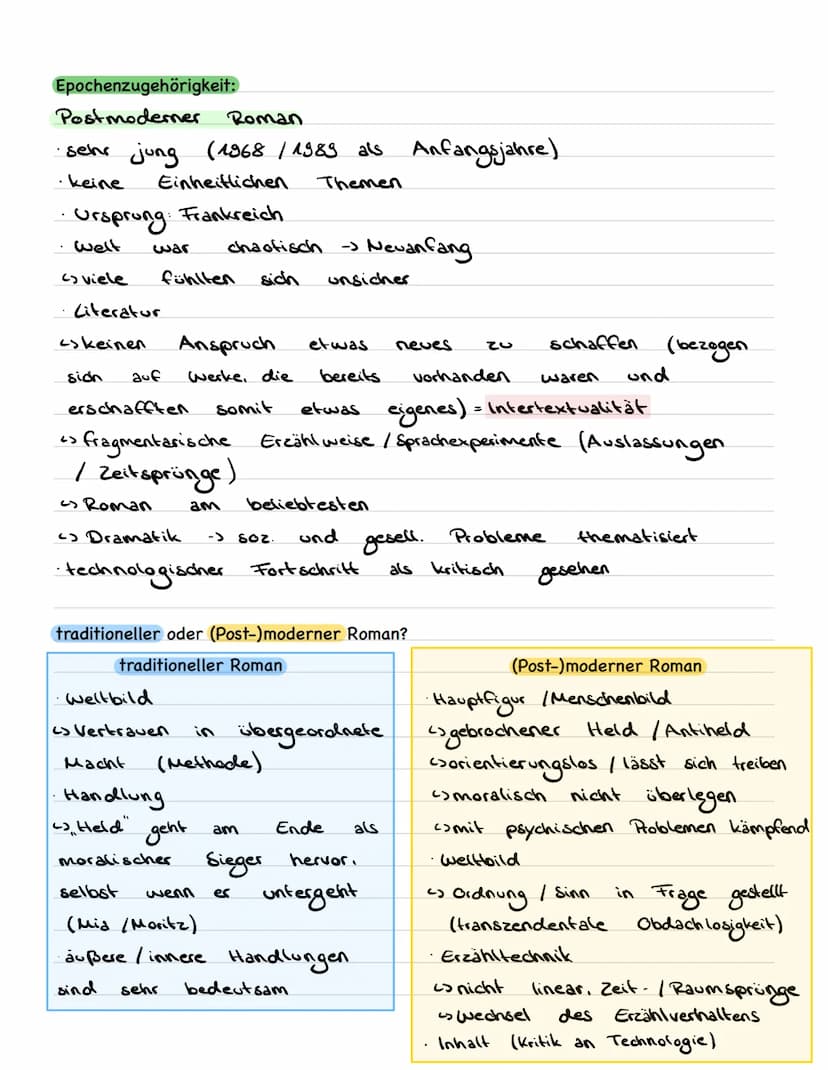 Epochenzugehörigkeit:
Postmoderner Roman
· sehr jung (1968 / 1989 als Anfangsjahre)
· keine Einheitlichen Themen
· Ursprung: Frankreich
· Welt war chaotisch -> Neuanfang
↳ viele fühlten sich unsicher
· Literatur
↳ keinen Anspruch etwas neues zu schaffen (bezogen
sich auf Werke, die bereits vorhanden waren und
erschafften somit etwas eigenes) = Intertextualität
↳ fragmentarische Erzählweise / Sprachexperimente (Auslassungen
/ Zeitsprünge)
↳ Roman am beliebtesten
↳ Dramatik -> soz. und gesell. Probleme thematisiert
· technologischer Fortschritt als kritisch gesehen
traditioneller oder (Post-)moderner Roman?
traditioneller Roman
· Weltbild
↳ Vertrauen in übergeordnete
Macht (Methode)
· Handlung
↳ „Held" geht am Ende als
moralischer Sieger hervor,
selbst wenn er untergeht
(Mia / Moritz)
· äußere / innere Handlungen
sind sehr bedeutsam
(Post-)moderner Roman
· Hauptfigur / Menschenbild
↳ gebrochener Held / Antiheld
↳ orientierungslos / lässt sich treiben
↳ moralisch nicht überlegen
↳ mit psychischen Problemen kämpfend
· Weltbild
↳ Ordnung / Sinn in Frage gestellt
(transzendentale Obdachlosigkeit)
· Erzähltechnik
↳ nicht linear, Zeit- / Raumsprünge
↳ Wechsel des Erzählverhaltens
· Inhalt (Kritik an Technologie)